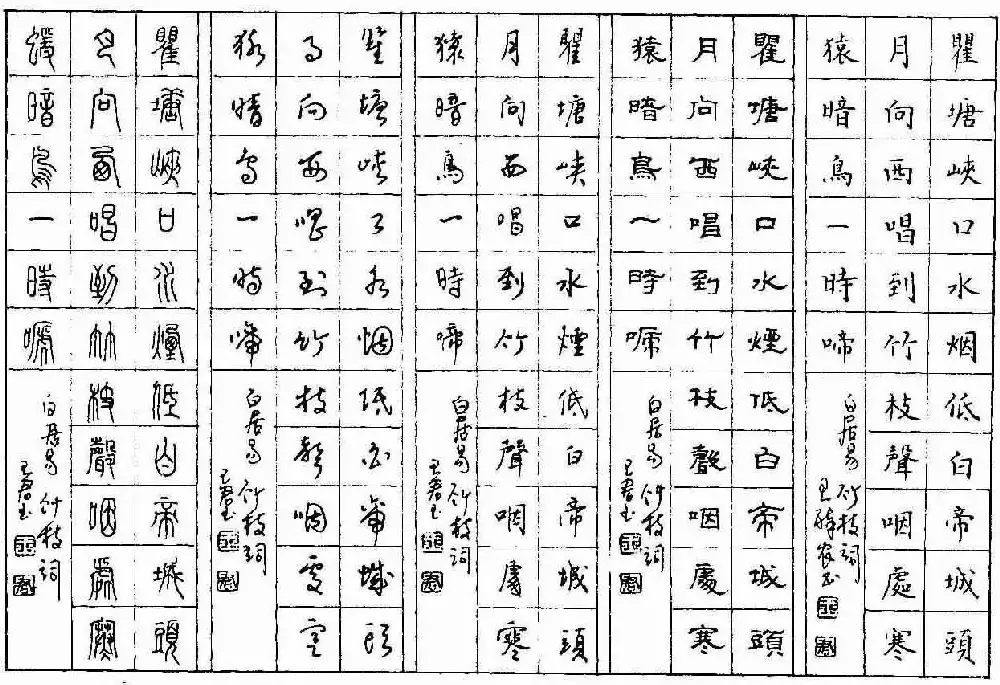 瞿塘峽口水烟低白帝城頭
月向西唱到竹枝聲咽處寒
猿暗鳥一時啼
白居易竹枝詞
瞿塘峽口水煙低白帝城頭
月向西唱到竹枝聲咽處寒
猿暗鳥一時啼
白居易竹枝詞
瞿塘峽口水煙低白帝城頭
月向西唱到竹枝聲咽處寒
猿暗鳥一時啼
白居易竹枝詞
瞿塘峽口水烟低白帝城頭
月向西唱到竹枝聲咽處寒
猿暗鳥一時啼
白居易竹枝詞
瞿塘峽口水煙低白帝城頭
月向西唱到竹枝聲咽處寒
猨暗鳥一時啼
白居易竹枝詞